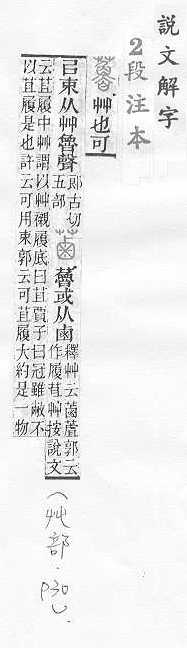 說文解字
2段注本
艸也可
㠯束从艸魯聲
郎古切
五部
蓾
或从鹵
釋艸云蓾蔖郭云
作履苴艸按說文
云苴履中艸謂以艸襯履底曰苴賈子曰冠雖敝不
以苴履是也許云可用束郭云可苴履大約是一物
(艸部.P30